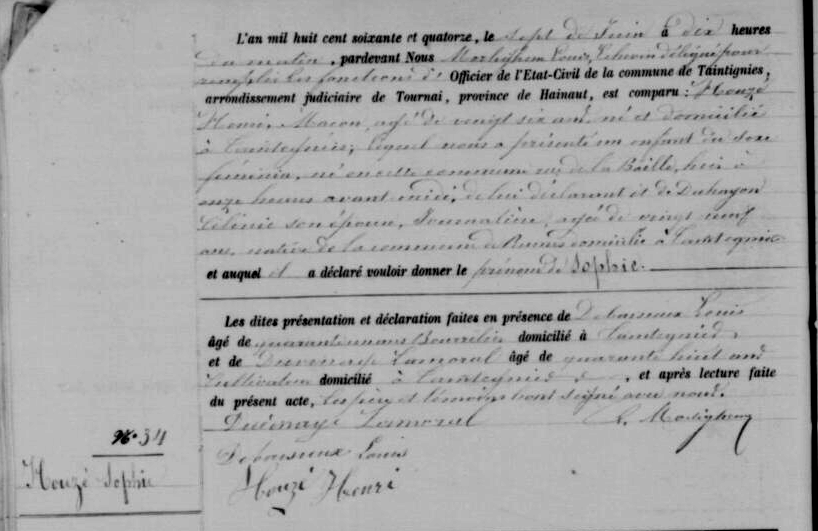 L'an mil huit cent soixante et quatorze, le sept de Juin à dix heures
du matin, pardevant Nous Morlighem Louis, Echevin délégué pour
remplir les fonctions d' Officier de l'Etat-Civil de la commune de Taintignies,
arrondissement judiciaire de Tournai, province de Hainaut, est comparu : Houzé
Henri, Maçon, agé de vingt six ans, né et domicilié
à Taintegnies, lequel nous a présenté un enfant du sexe
féminin, né en cette commune rue de la Baille, hier à
onze heures avant midi, de lui déclarant et de Duhayon
son épouse, Journalière, agée de vingt neuf
ans, native de la commune de Rumes domiciliée à Taintegnies
et auquel il a déclaré vouloir donner le prénom de Sophie.
Les dites présentation et déclaration faites en présence de Debaisieux Louis
âgé de quarante un ans Bourrelier domicilié à Taintegnies
et de Duvinage Lamoral âgé de quarante huit ans
Cultivateur domicilié à Taintegnies, et après lecture faite
du présent acte, les père et témoins l'ont signé avec nous.
Duvinage Lamoral L. Morlighem
Debaisieux Louis
Houzé Henri
N.º 34
Houzé Sophie